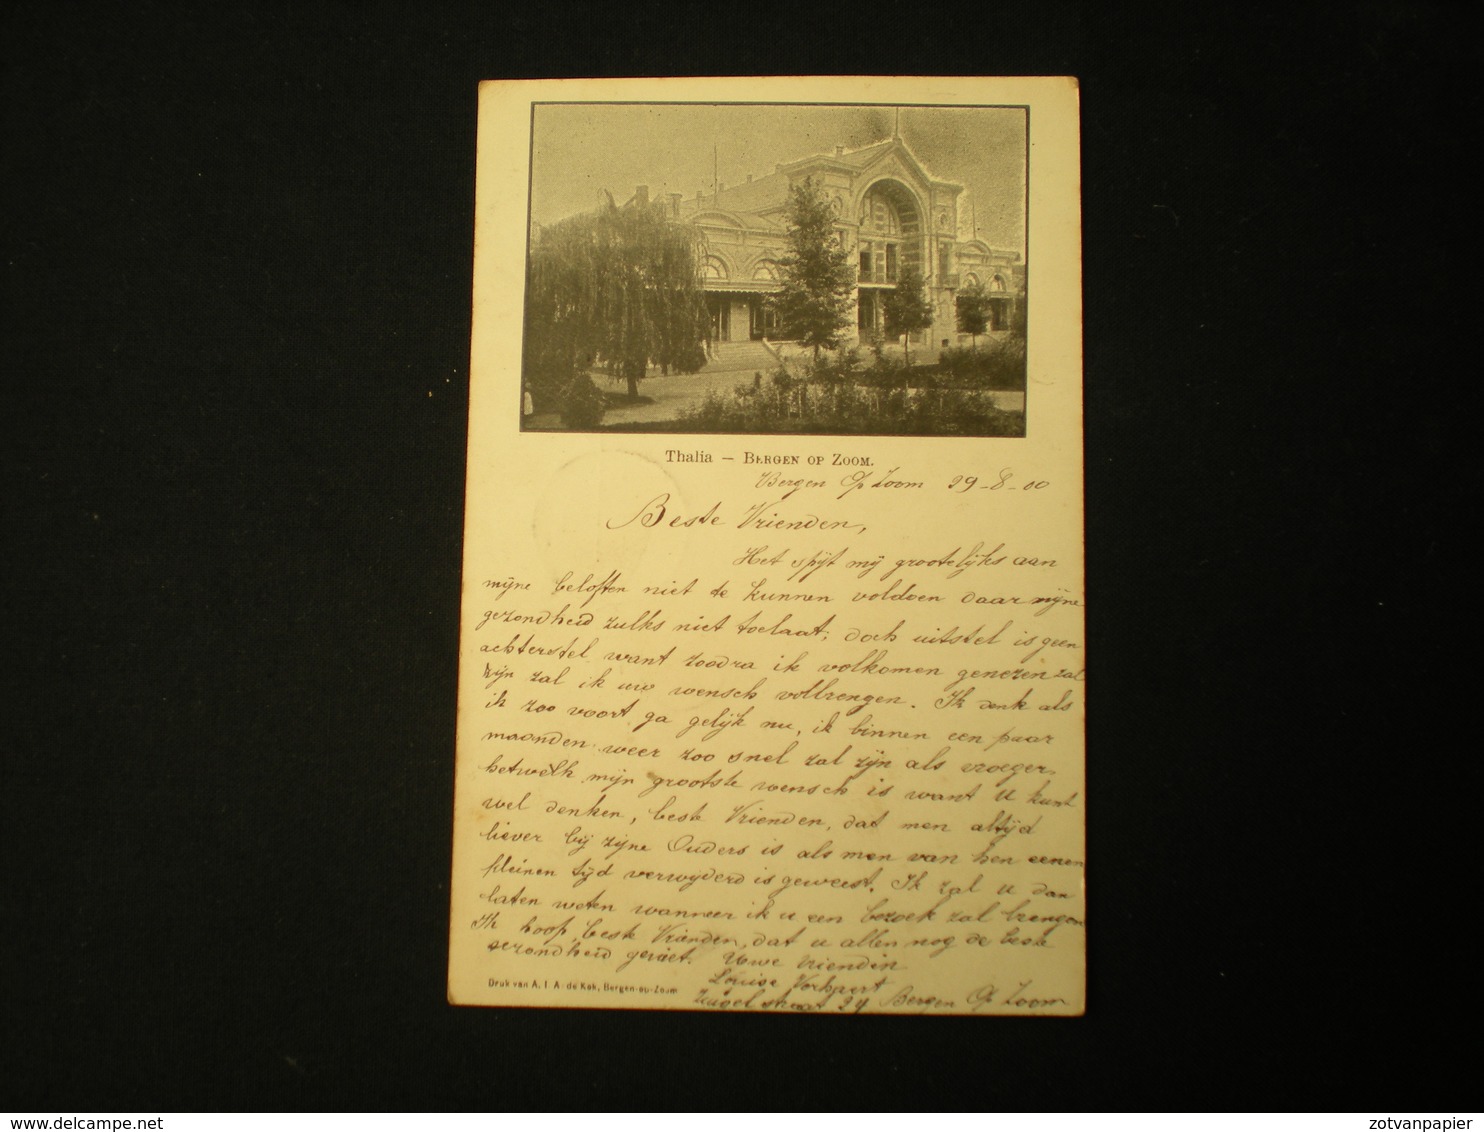 Thalia — BERGEN OP ZOOM.
Bergen Op Zoom 29-8-00
Beste Vrienden,
Het spijt mij grootelijks aan
mijne beloften niet te kunnen voldoen daar mijne
gezondheid zulks niet toelaat; doch uitstel is geen
achterstel want zoodra ik volkomen genezen zal
zijn zal ik uw wensch volbrengen. Ik denk als
ik zoo voort ga gelijk nu, ik binnen een paar
maanden weer zoo snel zal zijn als vroeger
hetwelk mijn grootste wensch is want u kunt
wel denken, beste Vrienden, dat men altijd
liever bij zijne Ouders is als men van hen eenen
kleinen tijd verwijderd is geweest. Ik zal u dan
laten weten wanneer ik u een bezoek zal brengen
Ik hoop, beste Vrienden, dat u allen nog de beste
gezondheid geniet. Uwe vriendin
Louise
24 Bergen Op Zoom
Druk van A. I. A. de Kok, Bergen-op-Zoom
delcampe.net
zotvanpapier